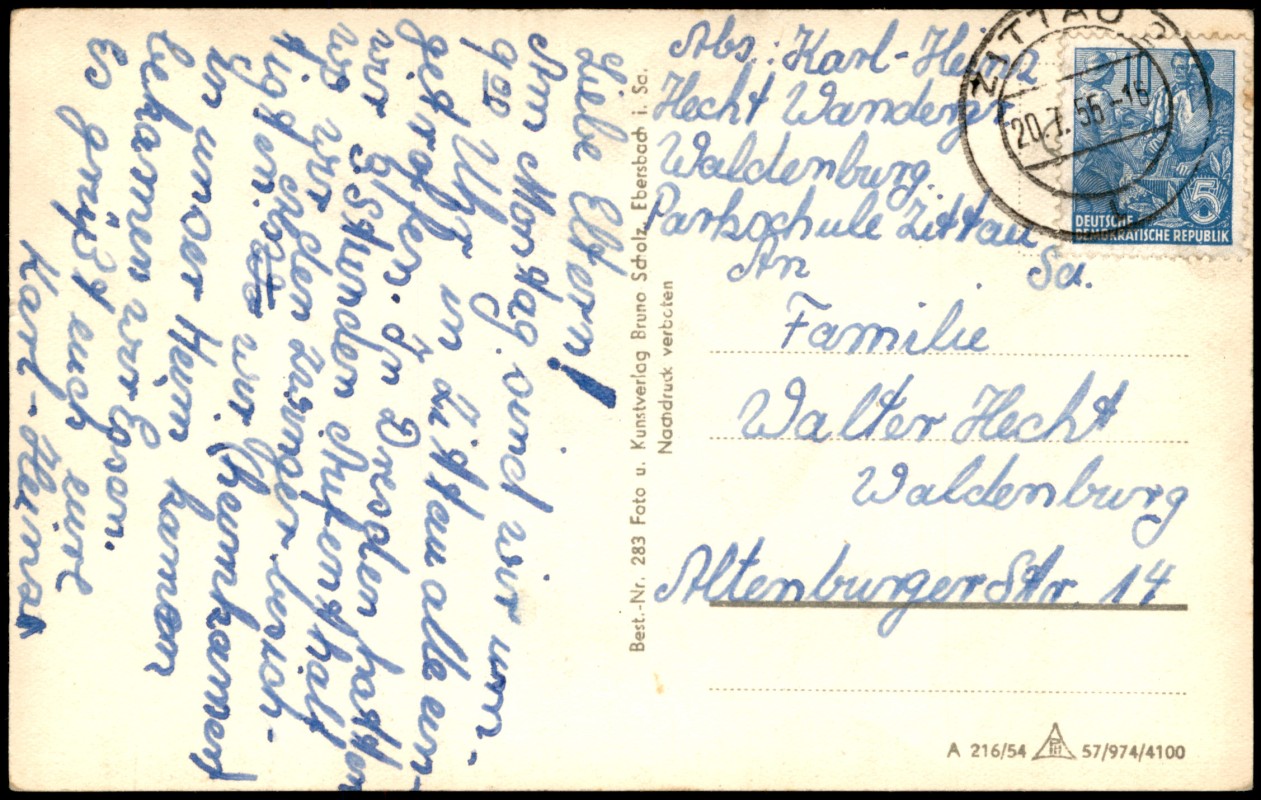 Liebe Eltern!
Am Montag sind wir um
9 00 Uhr in Zittau alle ein-
getroffen. In Dresden hatten
wir 3 Stunden Aufenthalt
wo wir den Zwinger besich-
tigten. wir
In unser Heim kamen
bekamen wir Essen.
Es grüßt euch eure
Karl-Heinz
Abs.: Karl-Heinz
Hecht
Waldenburg.
Parkschule Zittau
Sa.
An
Familie
Walter Hecht
Waldenburg
Altenburger Str. 14
ZITTAU 2
20.7.56-16
10
5
DEUTSCHE
DEMOKRATISCHE REPUBLIK
Best.-Nr. 283 Foto u. Kunstverlag Bruno Scholz, Ebersbach i. Sa.
Nachdruck verboten
A 216/54 57/974/4100